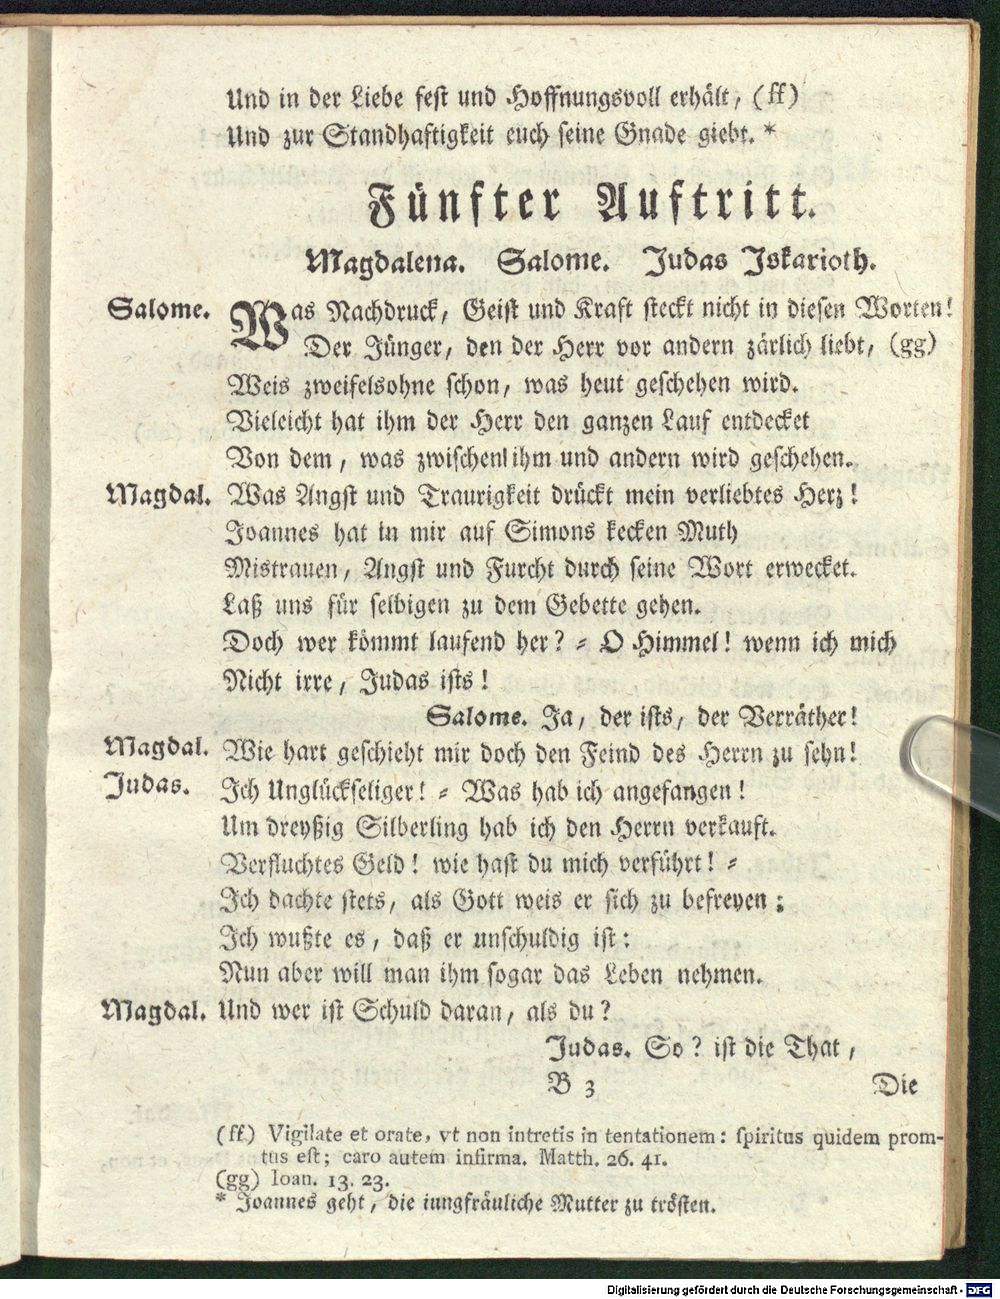 Und in der Liebe fest und Hoffnungsvoll erhält, (ff)
Und zur Standhaftigkeit euch seine Gnade giebt. *
Fünfter Auftritt.
Magdalena. Salome. Judas Iskarioth.
Salome. Was Nachdruck, Geist und Kraft steckt nicht in diesen Worten!
Der Jünger, den der Herr vor andern zärlich liebt, (gg)
Weis zweifelsohne schon, was heut geschehen wird.
Vieleicht hat ihm der Herr den ganzen Lauf entdecket
Von dem, was zwischen ihm und andern wird geschehen.
Magdal. Was Angst und Traurigkeit drückt mein verliebtes Herz!
Joannes hat in mir auf Simons kecken Muth
Mistrauen, Angst und Furcht durch seine Wort erwecket.
Laß uns für selbigen zu dem Gebette gehen.
Doch wer kömmt laufend her? = O Himmel! wenn ich mich
Nicht irre, Judas ists!
Salome. Ja, der ists, der Verräther!
Magdal. Wie hart geschieht mir doch den Feind des Herrn zu sehn!
Judas. Ich Unglückseliger! = Was hab ich angefangen!
Um dreyßig Silberling hab ich den Herrn verkauft.
Verfluchtes Geld! wie hast du mich verführt! =
Ich dachte stets, als Gott weis er sich zu befreyen;
Ich wußte es, daß er unschuldig ist:
Nun aber will man ihm sogar das Leben nehmen.
Magdal. Und wer ist Schuld daran, als du?
Judas. So? ist die That,
B 3 Die
(ff) Vigilate et orate, vt non intretis in tentationem: spiritus quidem prom-
tus est; caro autem infirma. Matth. 26. 41.
(gg) Ioan. 13. 23.
* Joannes geht, die jungfräuliche Mutter zu trösten.
Digitalisierung gefördert durch die Deutsche Forschungsgemeinschaft - DFG